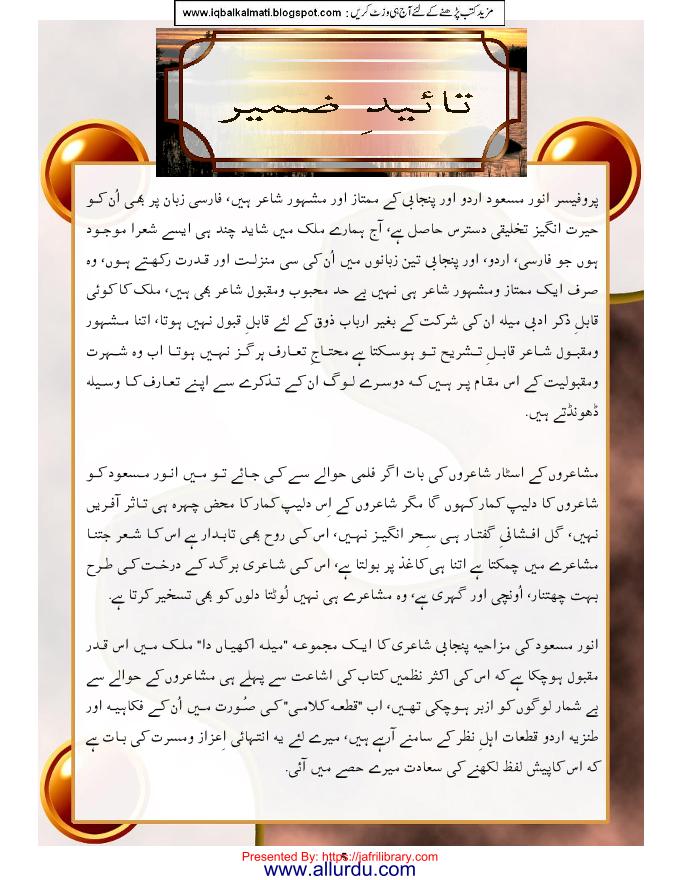 مزید کتب پڑھنے کے لئے آج ہی وزٹ کریں : www.iqbalkalmati.blogspot.com
تائیدِ ضمیر
پروفیسر انور مسعود اردو اور پنجابی کے ممتاز اور مشہور شاعر ہیں، فارسی زبان پر بھی اُن کو
حیرت انگیز تخلیقی دسترس حاصل ہے، آج ہمارے ملک میں شاید چند ہی ایسے شعرا موجود
ہوں جو فارسی، اردو، اور پنجابی تین زبانوں میں اُن کی سی منزلت اور قدرت رکھتے ہوں، وہ
صرف ایک ممتاز ومشہور شاعر ہی نہیں بے حد محبوب ومقبول شاعر بھی ہیں، ملک کا کوئی
قابلِ ذکر ادبی میلہ ان کی شرکت کے بغیر ارباب ذوق کے لئے قابلِ قبول نہیں ہوتا، اتنا مشہور
ومقبول شاعر قابلِ تشریح تو ہوسکتا ہے محتاجِ تعارف ہرگز نہیں ہوتا اب وہ شہرت
ومقبولیت کے اس مقام پر ہیں کہ دوسرے لوگ ان کے تذکرے سے اپنے تعارف کا وسیلہ
ڈھونڈتے ہیں.
مشاعروں کے اسٹار شاعروں کی بات اگر فلمی حوالے سے کی جائے تو میں انور مسعود کو
شاعروں کا دلیپ کمار کہوں گا مگر شاعروں کے اِس دلیپ کمار کا محض چہرہ ہی تاثر آفریں
نہیں، گل افشانیِ گفتار ہی سِحر انگیز نہیں، اس کی روح بھی تابدار ہے اس کا شعر جتنا
مشاعرے میں چمکتا ہے اتنا ہی کاغذ پر بولتا ہے، اس کی شاعری برگد کے درخت کی طرح
بہت چھتنار، اُونچی اور گہری ہے، وہ مشاعرے ہی نہیں لُوٹتا دلوں کو بھی تسخیر کرتا ہے.
انور مسعود کی مزاحیہ پنجابی شاعری کا ایک مجموعہ "میلہ اکھیاں دا" ملک میں اس قدر
مقبول ہوچکا ہے کہ اس کی اکثر نظمیں کتاب کی اشاعت سے پہلے ہی مشاعروں کے حوالے سے
بے شمار لوگوں کو ازبر ہوچکی تھیں، اب "قطعہ کلامی" کی صُورت میں اُن کے فکاہیہ اور
طنزیہ اردو قطعات اہلِ نظر کے سامنے آرہے ہیں، میرے لئے یہ انتہائی اِعزاز ومسرت کی بات ہے
کہ اس کاپیش لفظ لکھنے کی سعادت میرے حصے میں آئی.
Presented By: https://jafrilibrary.com
www.allurdu.com